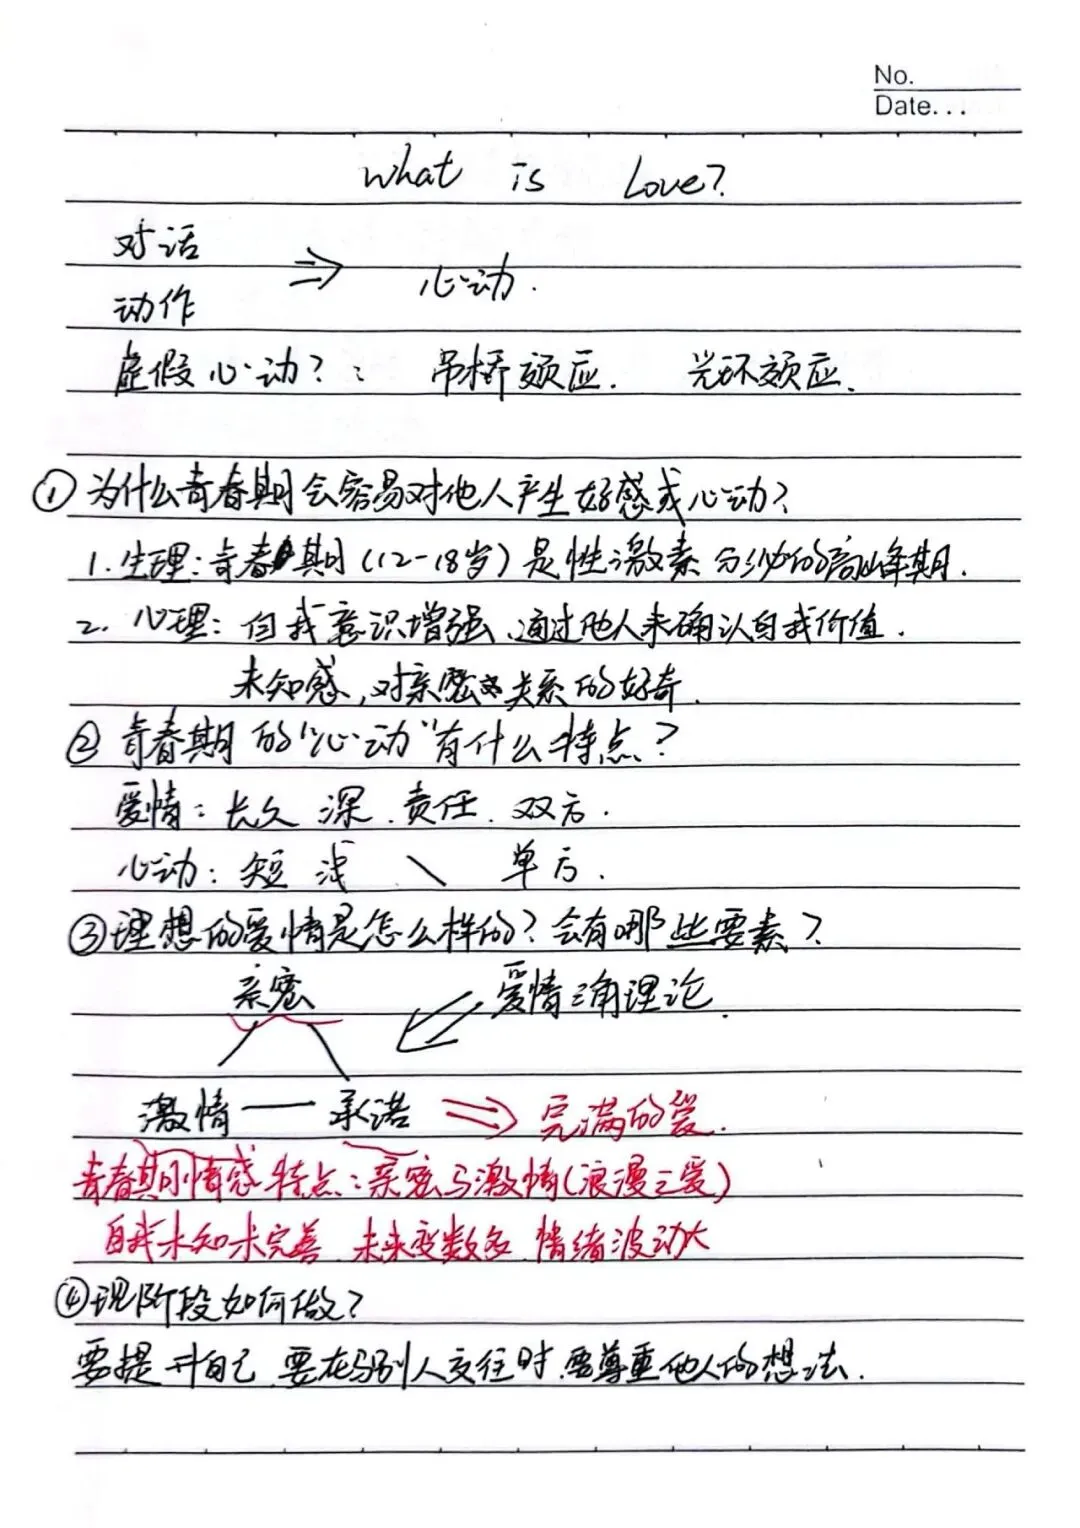 No.
Date...
What is Love?
对话
⇒ 心动.
动作
虚假心动?: 吊桥效应. 光环效应.
① 为什么青春期会容易对他人产生好感或心动?
1. 生理: 青春期 (12-18岁) 是性激素分泌的高峰期.
2. 心理: 自我意识增强、通过他人来确认自我价值.
未知感, 对亲密关系的好奇.
② 青春期的"心动"有什么特点?
爱情: 长久 深. 责任. 双方.
心动: 短 浅 \ 单方.
③ 理想的爱情是怎么样的? 会有哪些要素?
亲密 爱情三角理论.
激情 — 承诺 ⇒ 完满的爱.
青春期情感特点: 亲密与激情(浪漫之爱)
自我未知未完善. 未来变数多. 情绪波动大
④ 现阶段如何做?
要提升自己. 要在与别人交往时. 要尊重他人的想法.